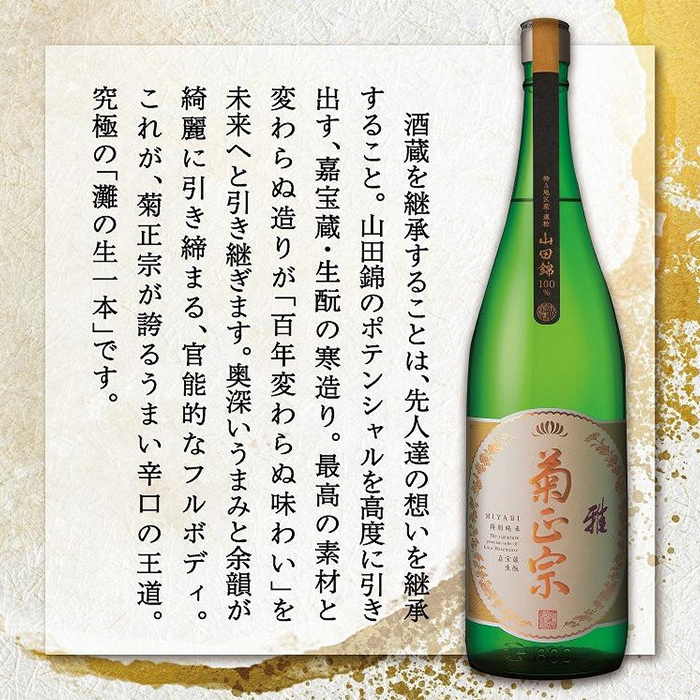 酒蔵を継承することは、先人達の想いを継承
すること。山田錦のポテンシャルを高度に引き
出す、嘉宝蔵・生酛の寒造り。最高の素材と
変わらぬ造りが「百年変わらぬ味わい」を
未来へと引き継ぎます。奥深いうまみと余韻が
綺麗に引き締まる、官能的なフルボディ。
これが、菊正宗が誇るうまい辛口の王道。
究極の「灘の生一本」です。
特A地区産・選粒
山田錦
100%
雅
菊正宗
MIYABI
特別純米
嘉宝蔵
生酛